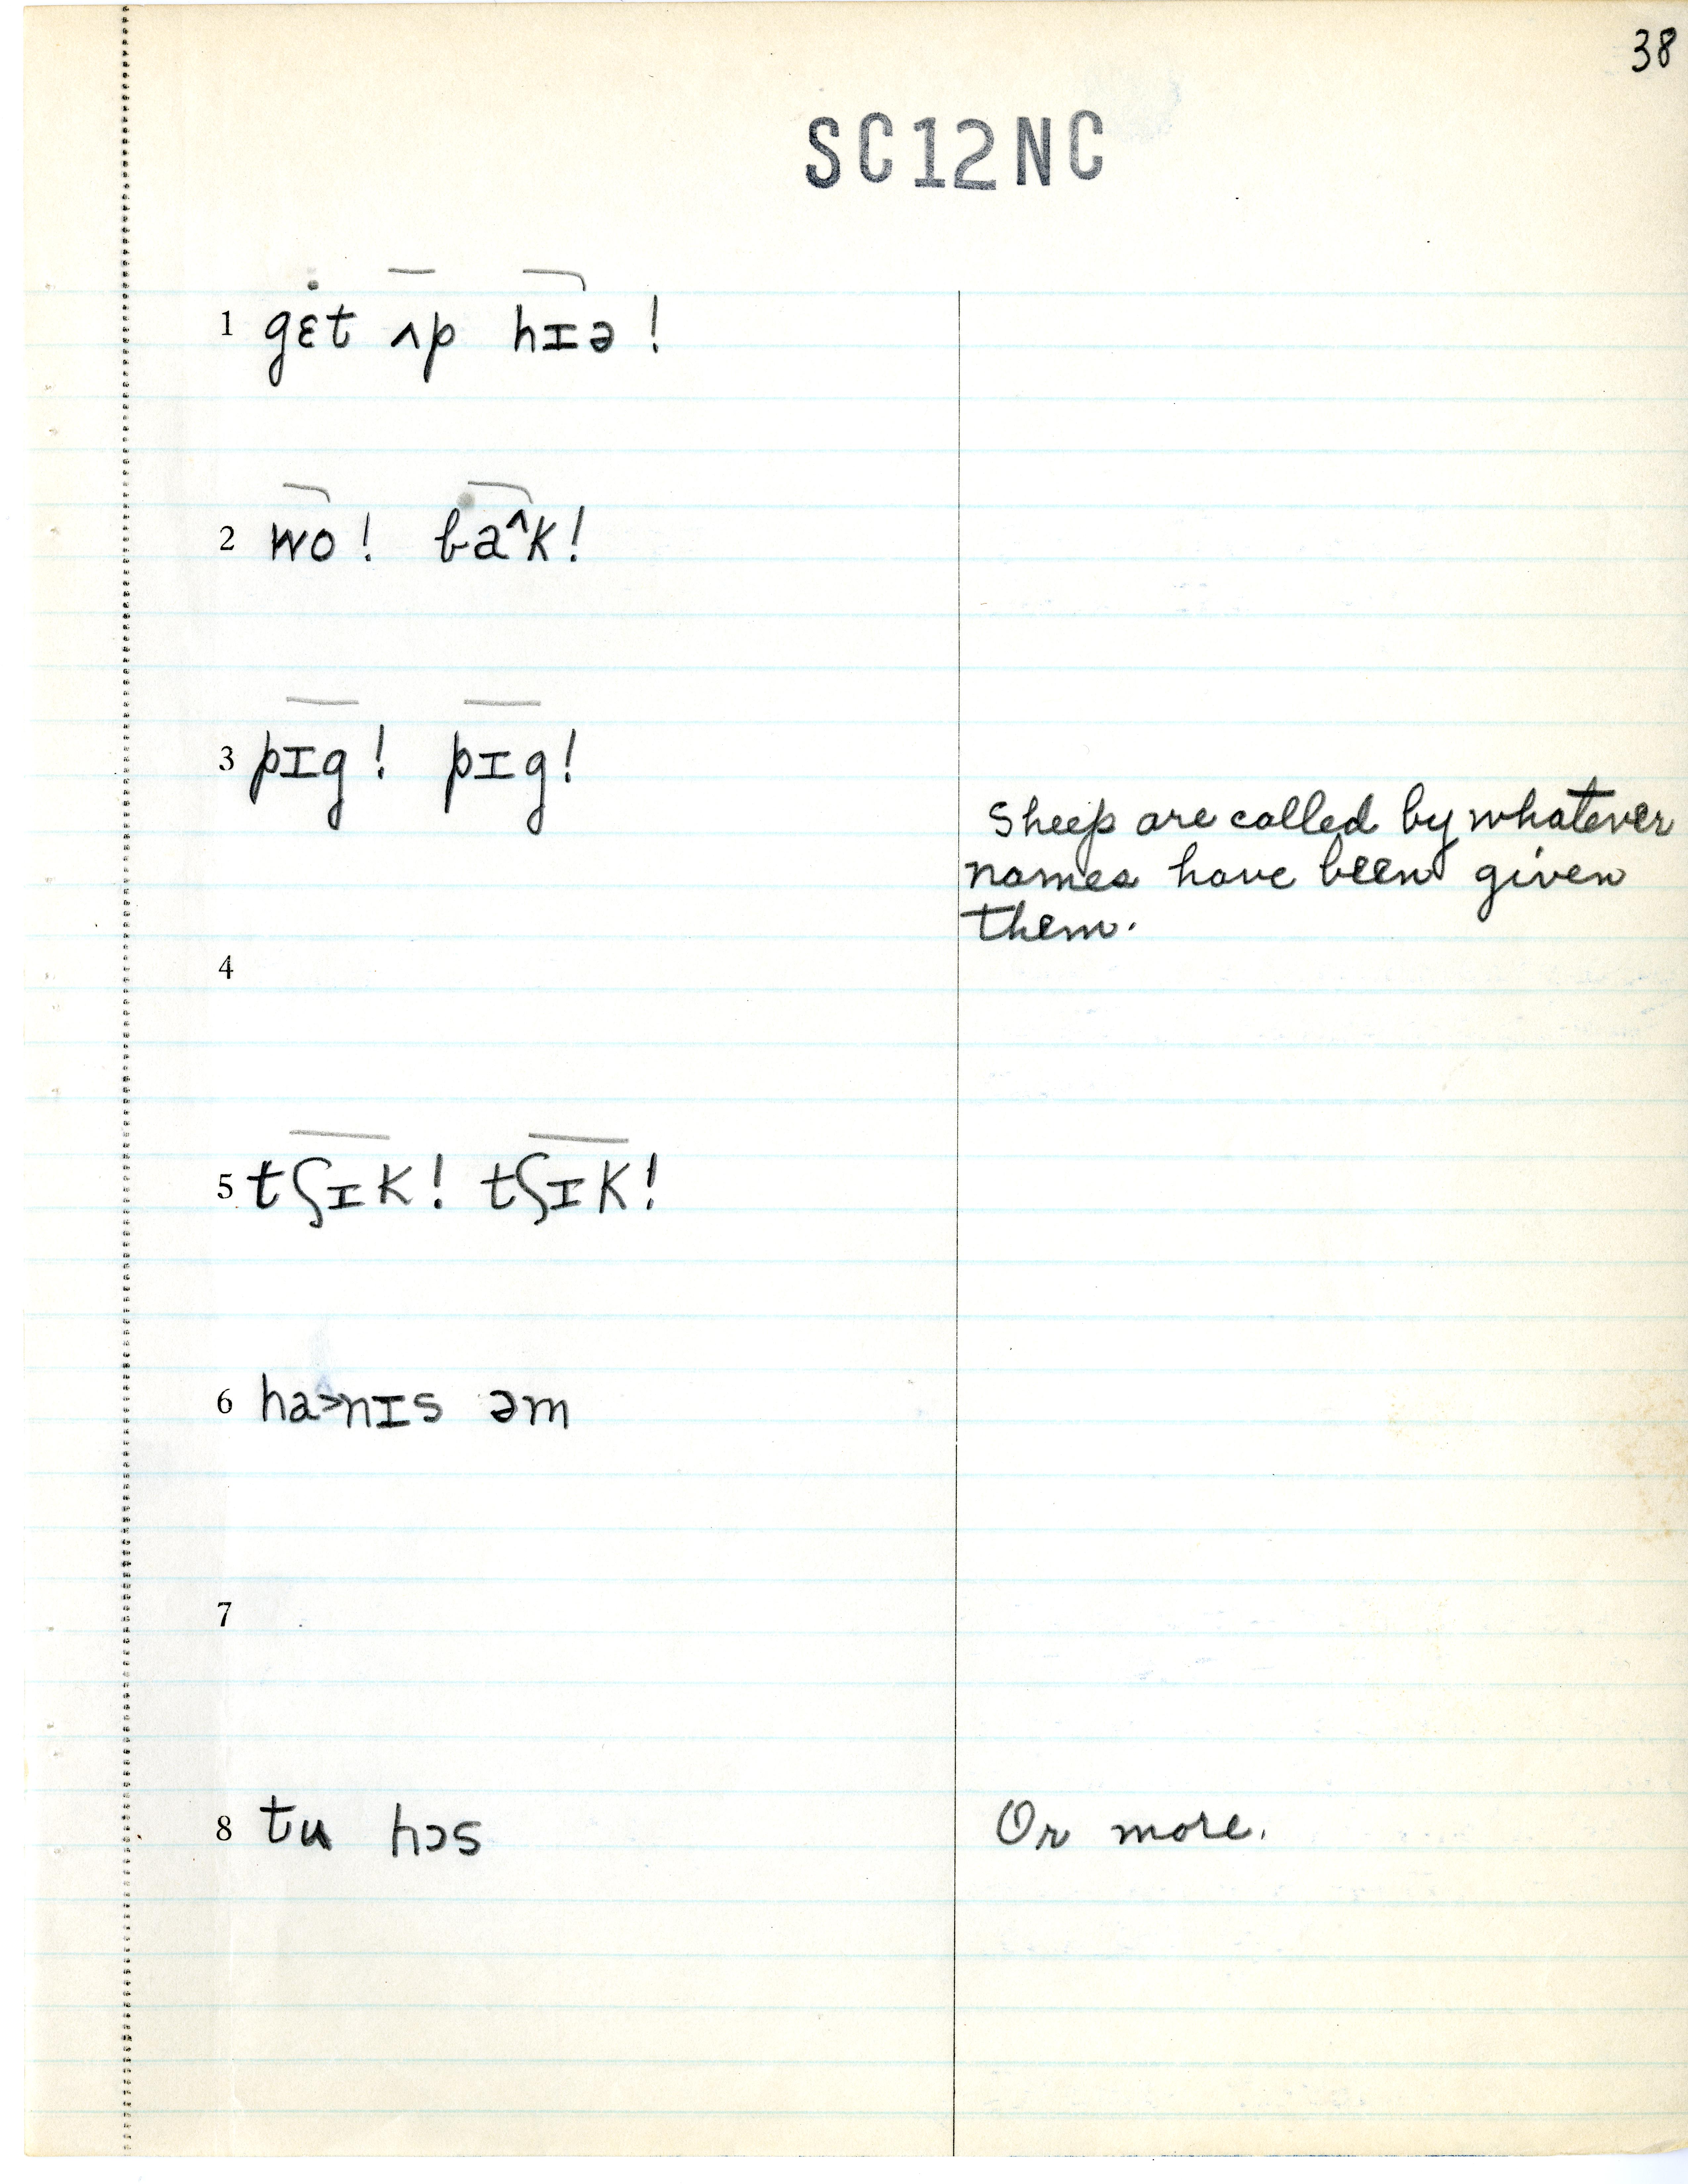 38
SC12NC
1 gɛt ʌp hɪə!
2 wo! ba^k!
3 pɪg! pɪg!
Sheep are called by whatever
names have been given
them.
4
5 tʃɪk! tʃɪk!
6 ha>nɪs əm
7
8 tu hɔs Or more.